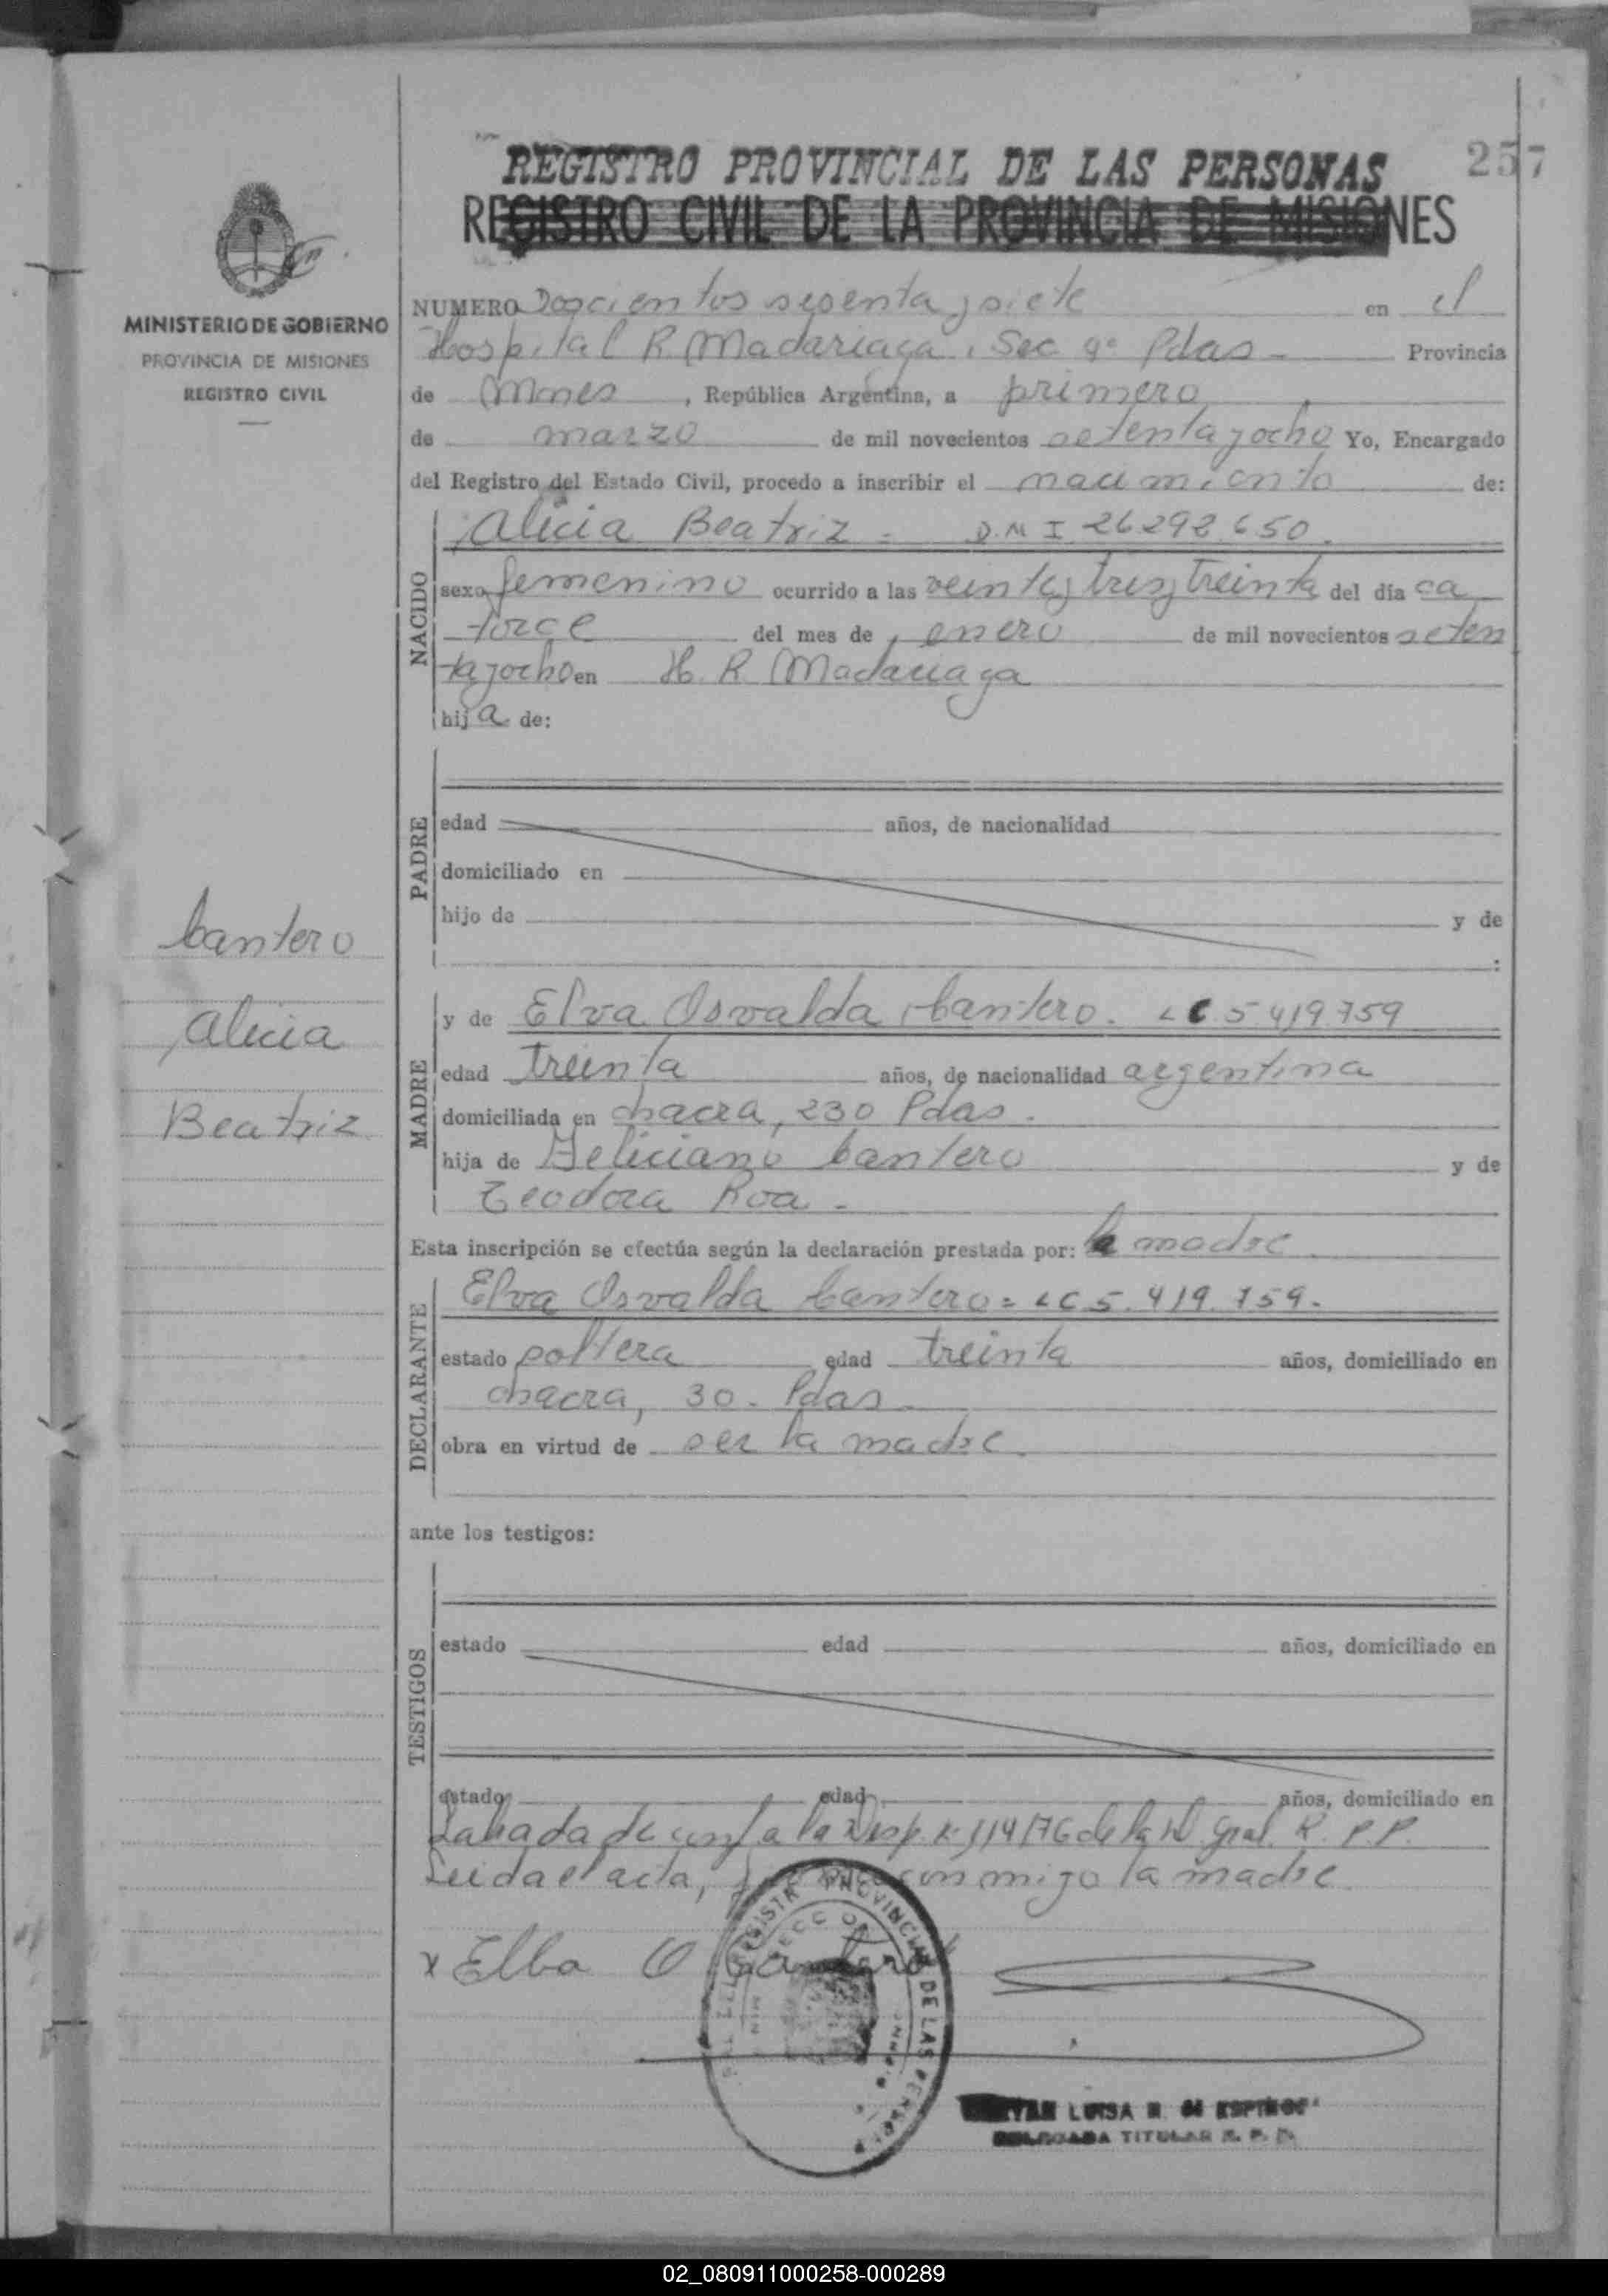 257
REGISTRO PROVINCIAL DE LAS PERSONAS
REGISTRO CIVIL DE LA PROVINCIA DE MISIONES
MINISTERIO DE GOBIERNO
PROVINCIA DE MISIONES
REGISTRO CIVIL
NUMERO Doscientos sesenta y siete en el
Hospital R. Madariaga, Sec 9ª Pdas - Provincia
de Mnes, República Argentina, a primero
de marzo de mil novecientos setenta y ocho Yo, Encargado
del Registro del Estado Civil, procedo a inscribir el nacimiento de:
NACIDO
Alicia Beatriz = D.N I 26.292.650.
sexo femenino ocurrido a las veinte y tres y treinta del día ca
torce del mes de enero de mil novecientos seten
ta y ocho en H. R. Madariaga
hija de:
PADRE
edad años, de nacionalidad
domiciliado en
hijo de y de
:
Cantero
Alicia
Beatriz
MADRE
y de Elva Osvalda Cantero. LC 5 419 759
edad treinta años, de nacionalidad argentina
domiciliada en chacra, 230 Pdas.
hija de Feliciano Cantero y de
Teodora Roa -
Esta inscripción se efectúa según la declaración prestada por: la madre
DECLARANTE
Elva Osvalda Cantero = LC 5.419.759.
estado soltera edad treinta años, domiciliado en
chacra, 30 - Pdas
obra en virtud de ser la madre
ante los testigos:
TESTIGOS
estado edad años, domiciliado en
estado edad años, domiciliado en
de la Gral. R. P.P.
Leida el acta, conmigo la madre
x Elba O Cantero
REGISTRO PROVINCIAL DE LAS PERSONAS
LUISA
DELEGADA TITULAR R. P. P.
02_080911000258-000289